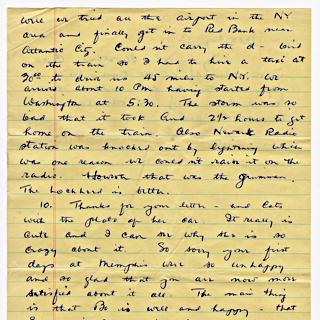 were we tried all the airport in the NY
area and finally got in to Red Bank near
Atlantic City. Could n't carry the d- bird
on the train so I had to hire a taxi at
30 to drive us 45 miles to NY. We
arrived about 10 Pm having started from
Washington at 5.30. The storm was so
bad that it took 2 1/2 hours to get
home on the train. Also Newark Radio
station was knocked out by lightning which
was one reason we could n't raise it on the
radio. However that was the Grumman.
The Lockheed is better.
10. Thanks for your letter - and Cats
with the photos of her car. It really is
cute and I can see why she is so
crazy about it. So sorry your first
days at Memphis were so unhappy
and so glad that you are now more
satisfied about it all. The main thing
is that Bo is well and happy - that